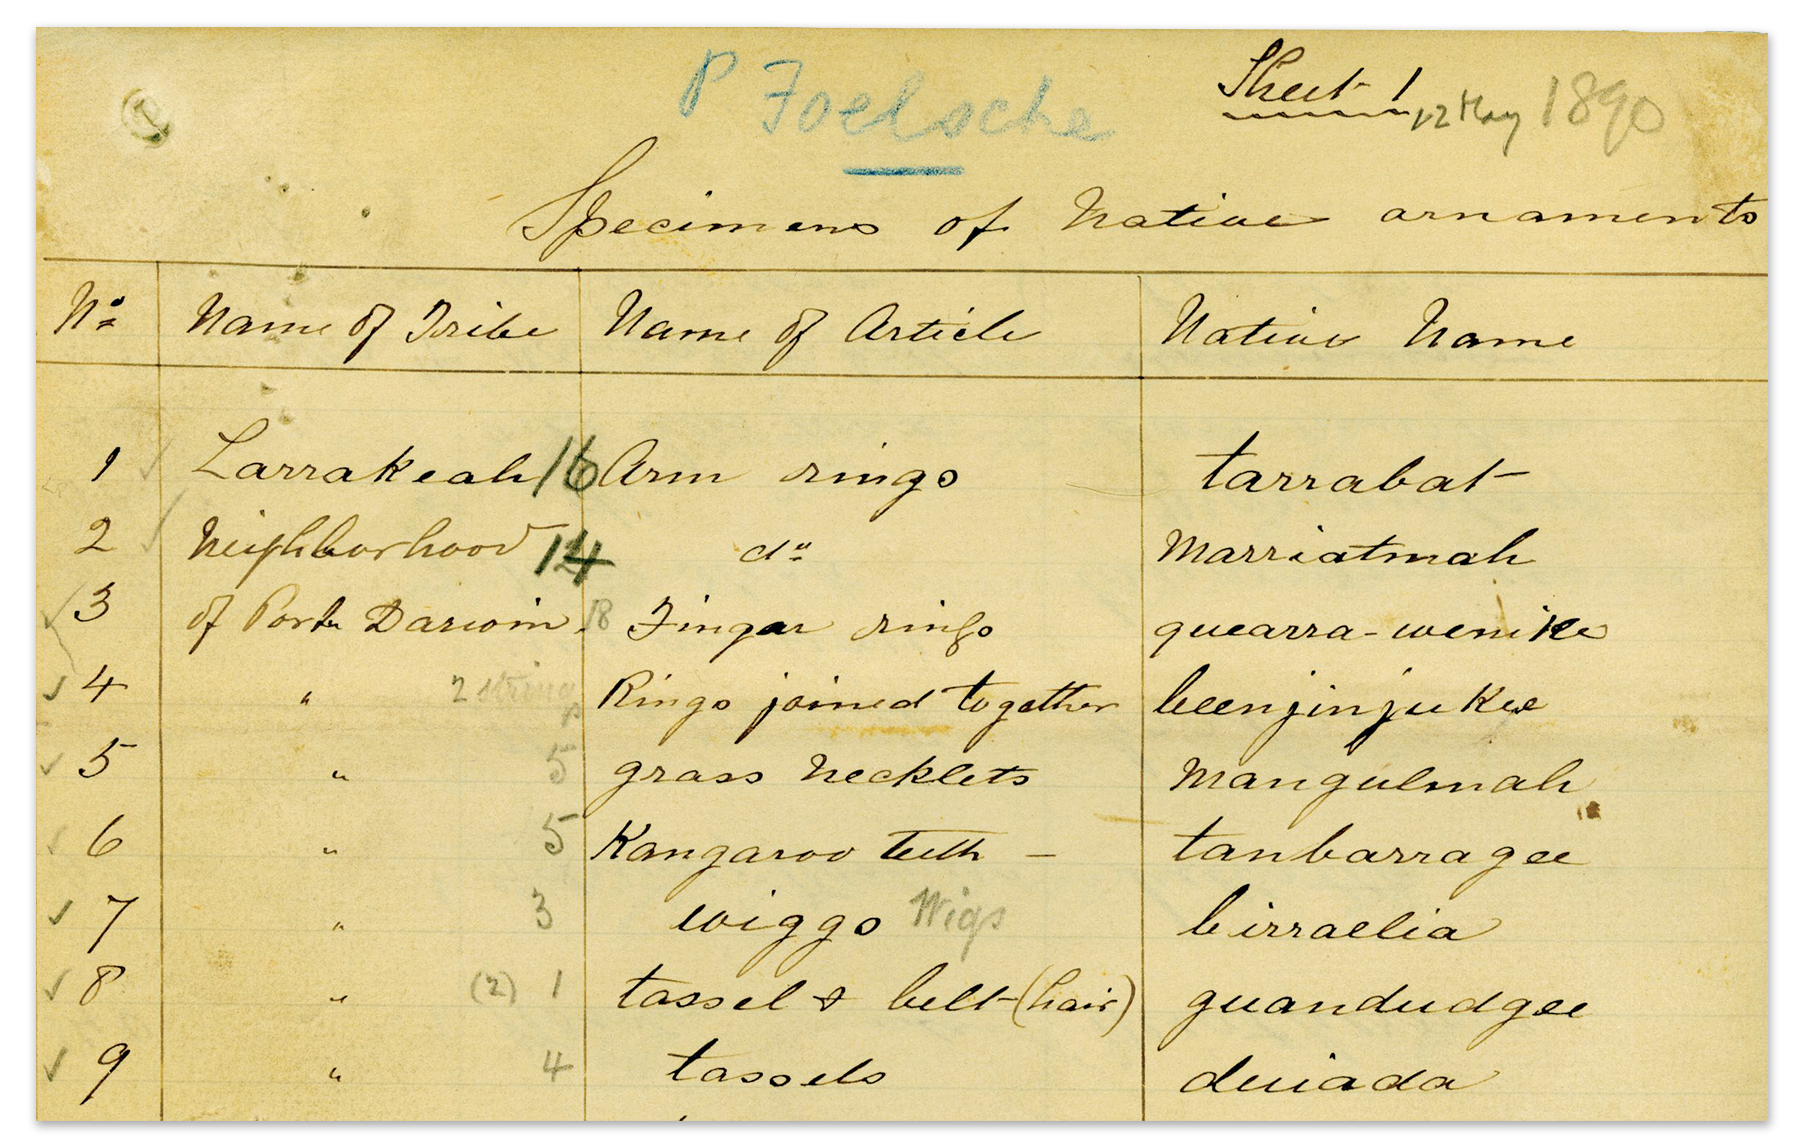 P Foelsche
Sheet 1 12 May 1890
Specimens of Native ornaments
No Name of Tribe Name of Article Native Name
1 Larrakeah 16 Arm rings tarrabat
2 Neighborhood 14 do marriatmah
3 of Port Darwin. 18 Fingar rings quearra-wenike
4 " 2 strings Rings joined together beenjinjukee
5 " 5 grass necklets mangulmah
6 " 5 Kangaroo teeth – tanbarragee
7 " 3 wiggs Wigs birraelia
8 " (2) 1 tassel & belt (hair) guandudgee
9 " 4 tassels